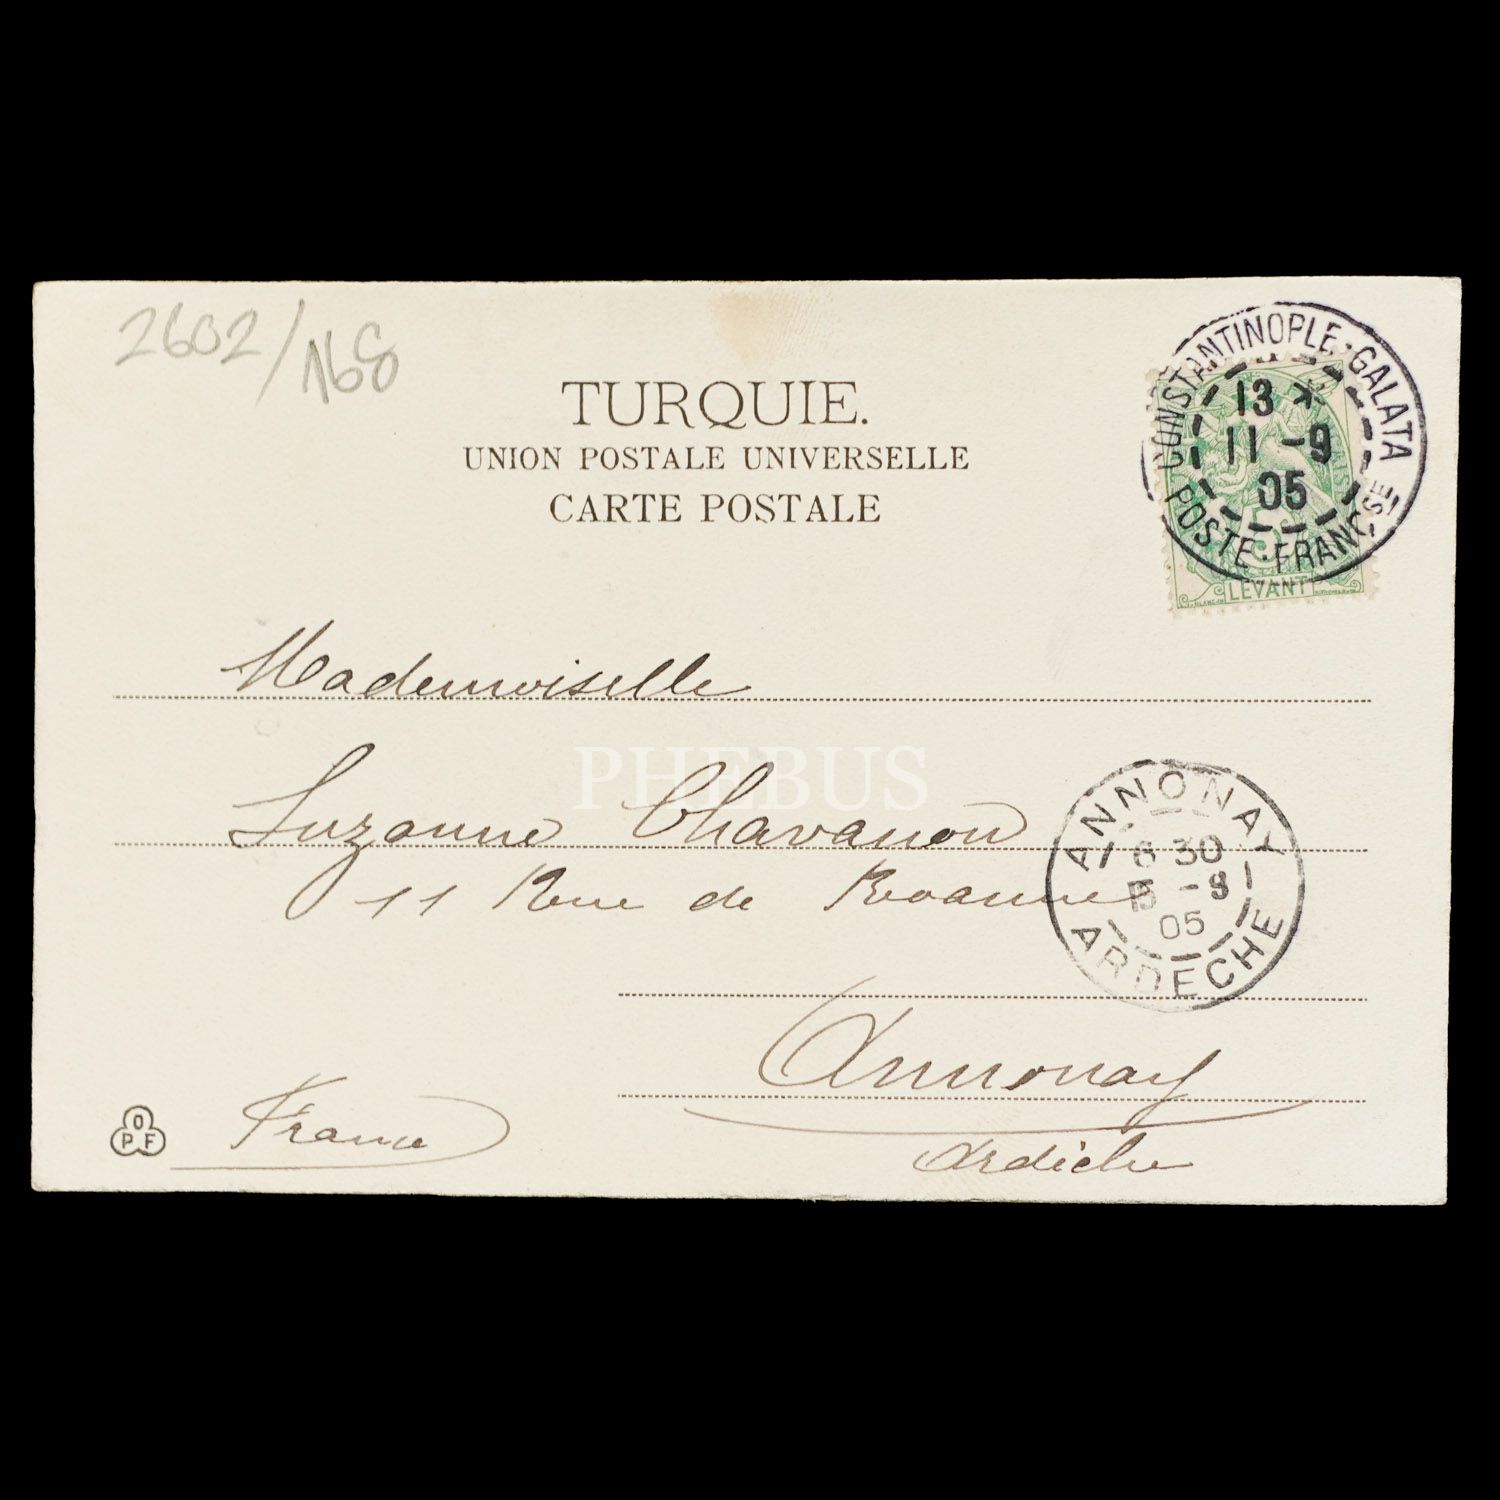 2602/168
TURQUIE.
UNION POSTALE UNIVERSELLE
CARTE POSTALE
CONSTANTINOPLE-GALATA
13 *
11 -9
05
POSTE·FRANÇSE
5
LEVANT
Mademoiselle
PHEBUS
Suzanne Chavanon
11 Rue de Roanne
ANNONAY
6 30
15 -9
05
ARDECHE
Annonay
Ardèche
France
O
P F